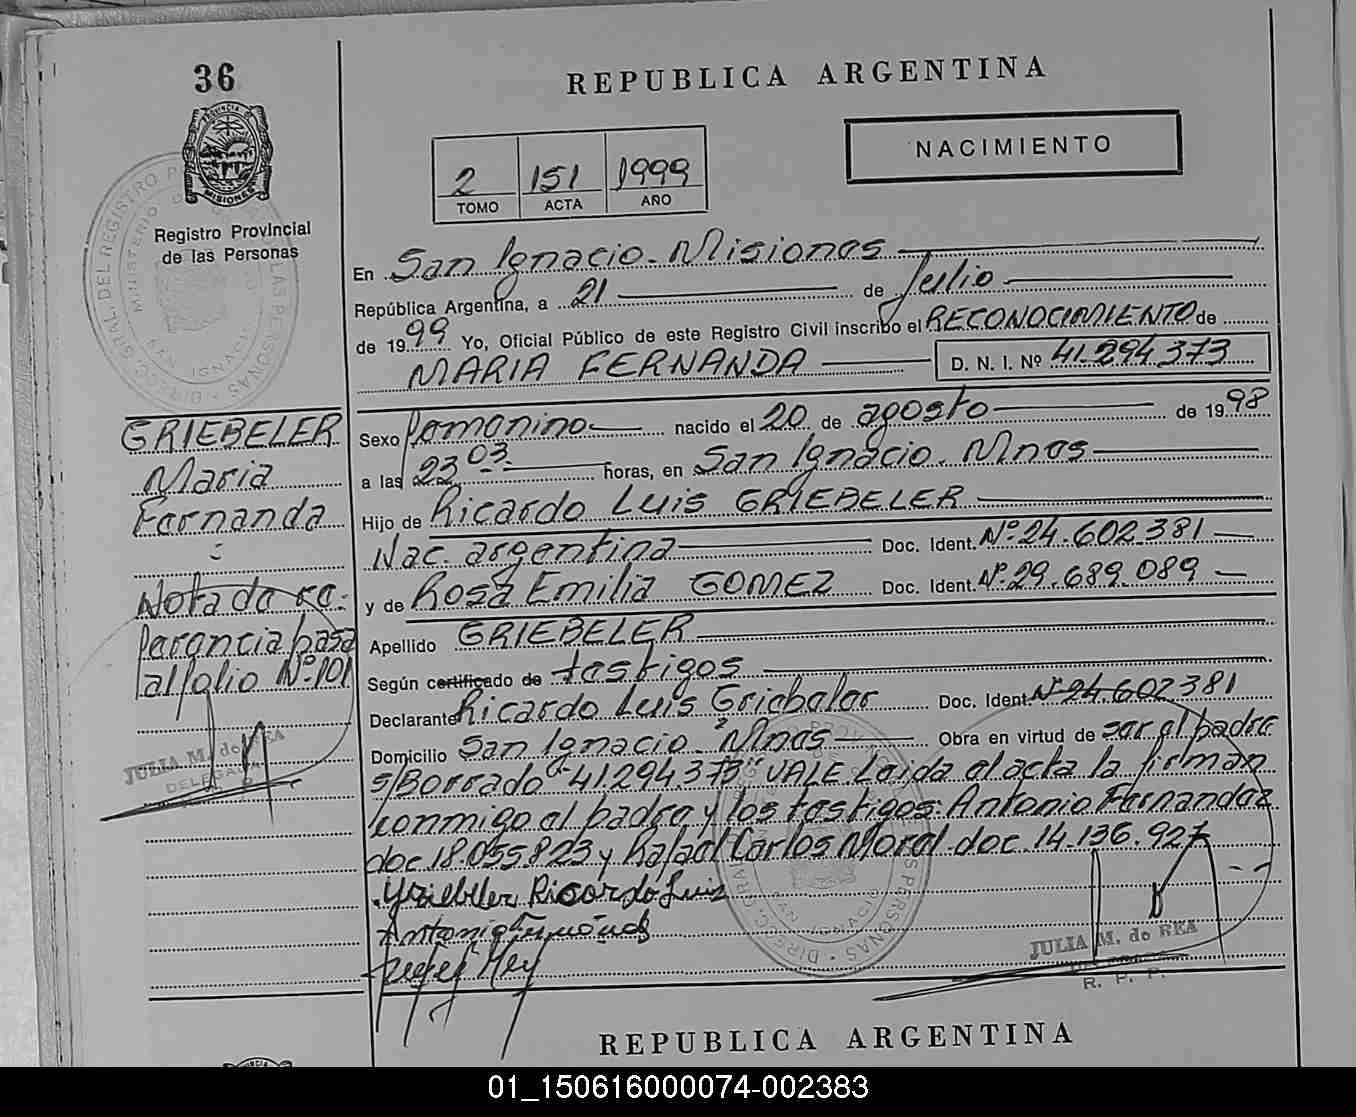 36
REPUBLICA ARGENTINA
NACIMIENTO
2 151 1999
TOMO ACTA AÑO
Registro Provincial
de las Personas
En San Ignacio - Misiones
República Argentina, a 21 de Julio
de 1999 Yo, Oficial Público de este Registro Civil inscribo el RECONOCIMIENTO de
MARIA FERNANDA D. N. I. Nº 41.294.373
GRIEBELER
Maria
Fernanda
Nota de re-
ferencia pasa
al folio Nº 101
JULIA M. de REA
DELEGADA
Sexo femenino nacido el 20 de agosto de 1998
a las 23 03 horas, en San Ignacio. Mnes
Hijo de Ricardo Luis GRIEBELER
Nac. argentina Doc. Ident. Nº 24.602.381
y de Rosa Emilia GOMEZ Doc. Ident. Nº 29.689.089
Apellido GRIEBELER
Según certificado de testigos
Declarante Ricardo Luis Griebeler Doc. Ident. Nº 24.602381
Domicilio San Ignacio - Mnes Obra en virtud de ser el padre
s/Borrado "41.294.373" VALE Leida el acta la firman
conmigo el padre y los testigos: Antonio Fernandez
doc. 18.055823 y Rafael Carlos Morel doc. 14.136.927
Griebeler Ricardo Luis
JULIA M. de REA
R. P. P.
REPUBLICA ARGENTINA
01_150616000074-002383